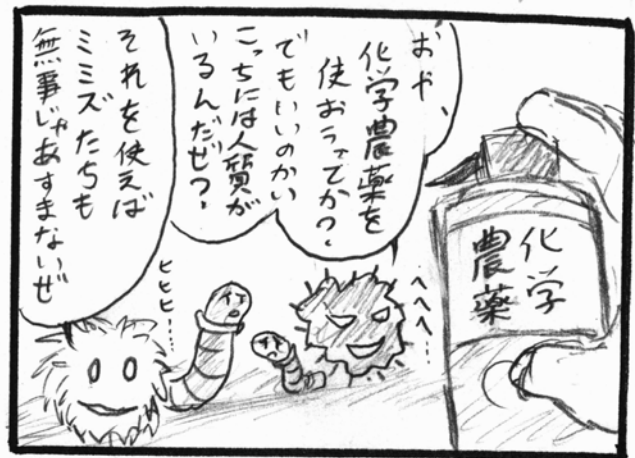 おや、
化学農薬を
使おうってか?
でもいいのかい
こっちには人質が
いるんだぜ?
それを使えば
ミミズたちも
無事じゃあすまないぜ
化学
農薬
へへへ…
ヒヒヒ…